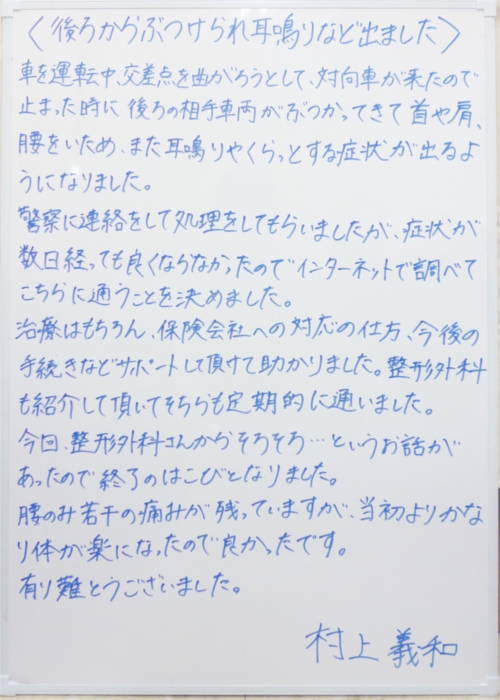 〈後ろからぶつけられ耳鳴りなど出ました〉
車を運転中、交差点を曲がろうとして、対向車が来たので
止まった時に後ろの相手車両がぶつかってきて首や肩、
腰をいため、また耳鳴りやくらっとする症状が出るよ
うになりました。
警察に連絡をして処理をしてもらいましたが、症状が
数日経っても良くならなかったのでインターネットで調べて
こちらに通うことを決めました。
治療はもちろん、保険会社への対応の仕方、今後の
手続きなどサポートして頂けて助かりました。整形外科
も紹介して頂いてそちらも定期的に通いました。
今回、整形外科さんからそろそろ…というお話が
あったので終了のはこびとなりました。
腰のみ若干の痛みが残っていますが、当初よりかな
り体が楽になったので良かったです。
有り難とうございました。
村上義和